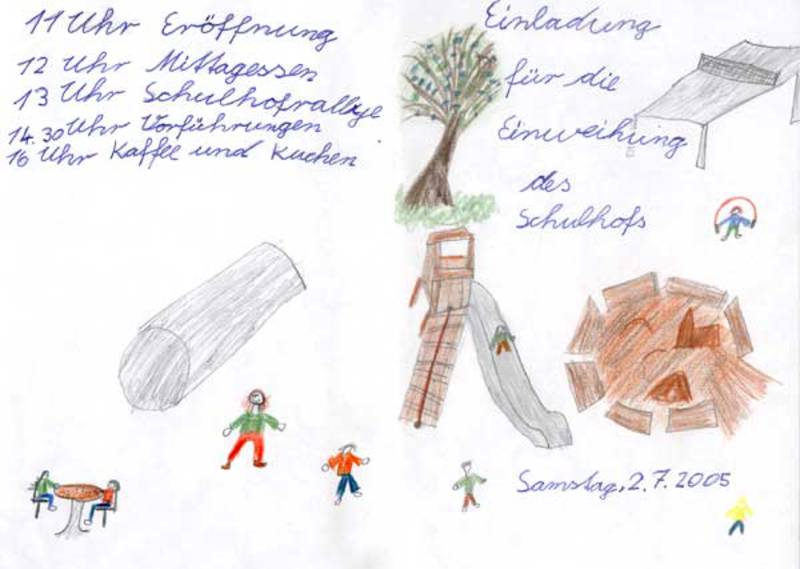 11 Uhr Eröffnung
12 Uhr Mittagessen
13 Uhr Schulhofrallye
14.30 Uhr Vorführungen
16 Uhr Kaffee und Kuchen
Einladung
für die
Einweihung
des
Schulhofs
Samstag, 2.7.2005